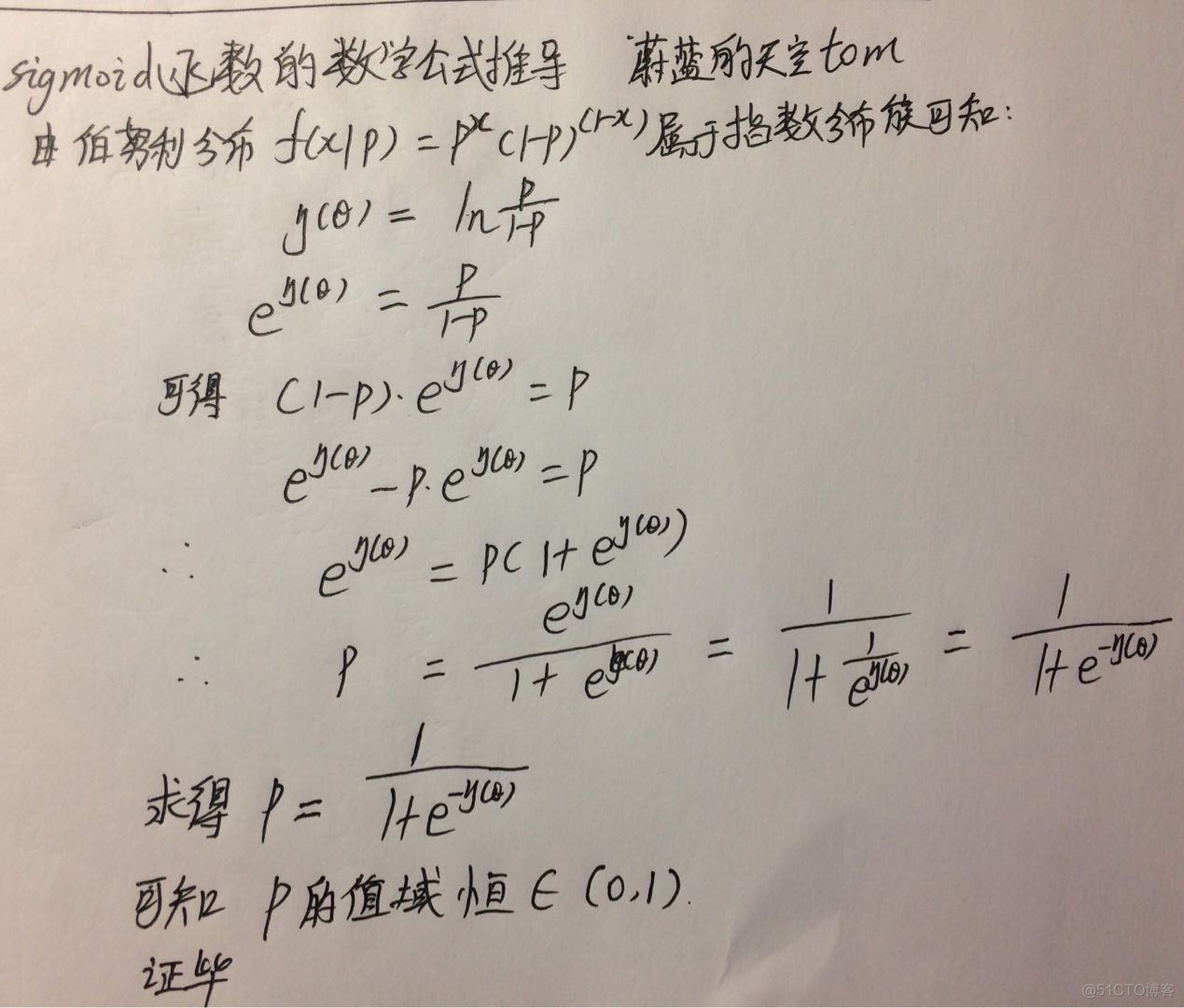 sigmoid函数的数学公式推导 蔚蓝的天空tom
由伯努利分布 f(x|p) = p^x (1-p)^(1-x) 属于指数分布族可知:
η(θ) = ln p/(1-p)
e^η(θ) = p/(1-p)
可得 (1-p)·e^η(θ) = p
e^η(θ) - p·e^η(θ) = p
∴ e^η(θ) = p(1+e^η(θ))
∴ p = e^η(θ)/(1+e^η(θ)) = 1/(1+1/e^η(θ)) = 1/(1+e^-η(θ))
求得 p = 1/(1+e^-η(θ))
可知 p的值域恒∈(0,1).
证毕
@51CTO博客